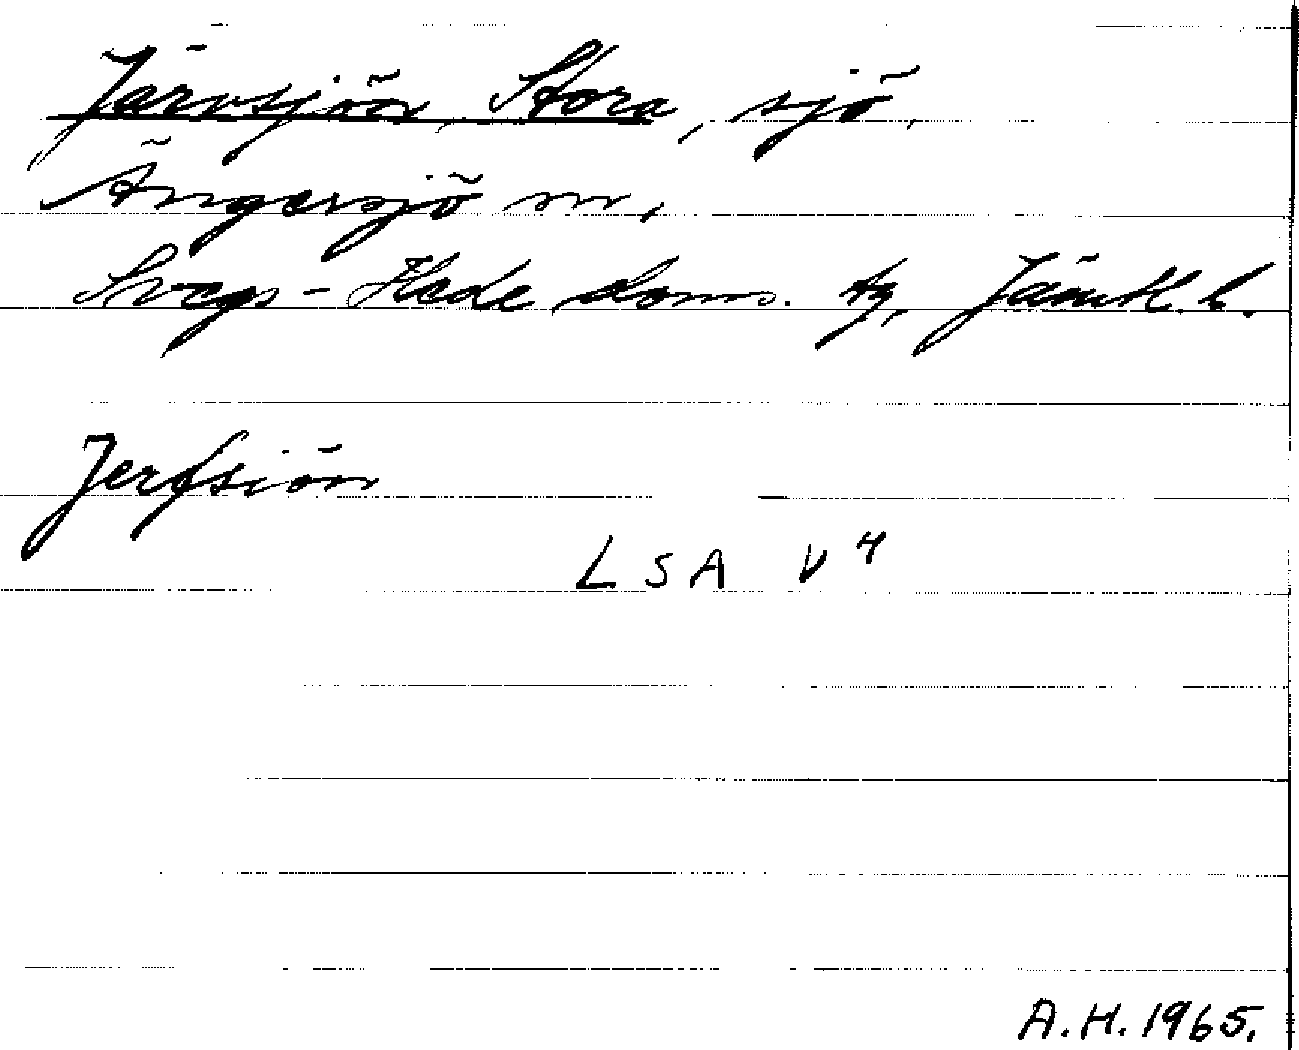 Järvsjön, Stora, sjö,
Ängersjö sn,
Svegs-Hede doms. tg, Jämtl. l.
Jerfsiön
LSA V 4
A.H. 1965.